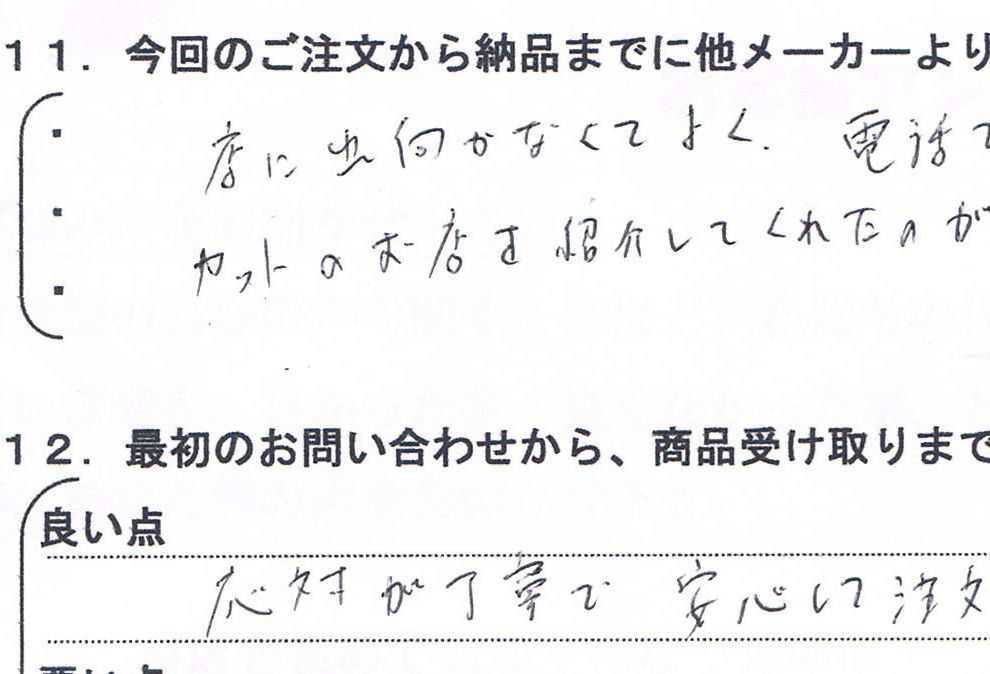 １１．今回のご注文から納品までに他メーカーより
・ 店に出向かなくてよく、電話で
・ カットのお店を紹介してくれたのが
・
１２．最初のお問い合わせから、商品受け取りまで
良い点
応対が丁寧で 安心して注文